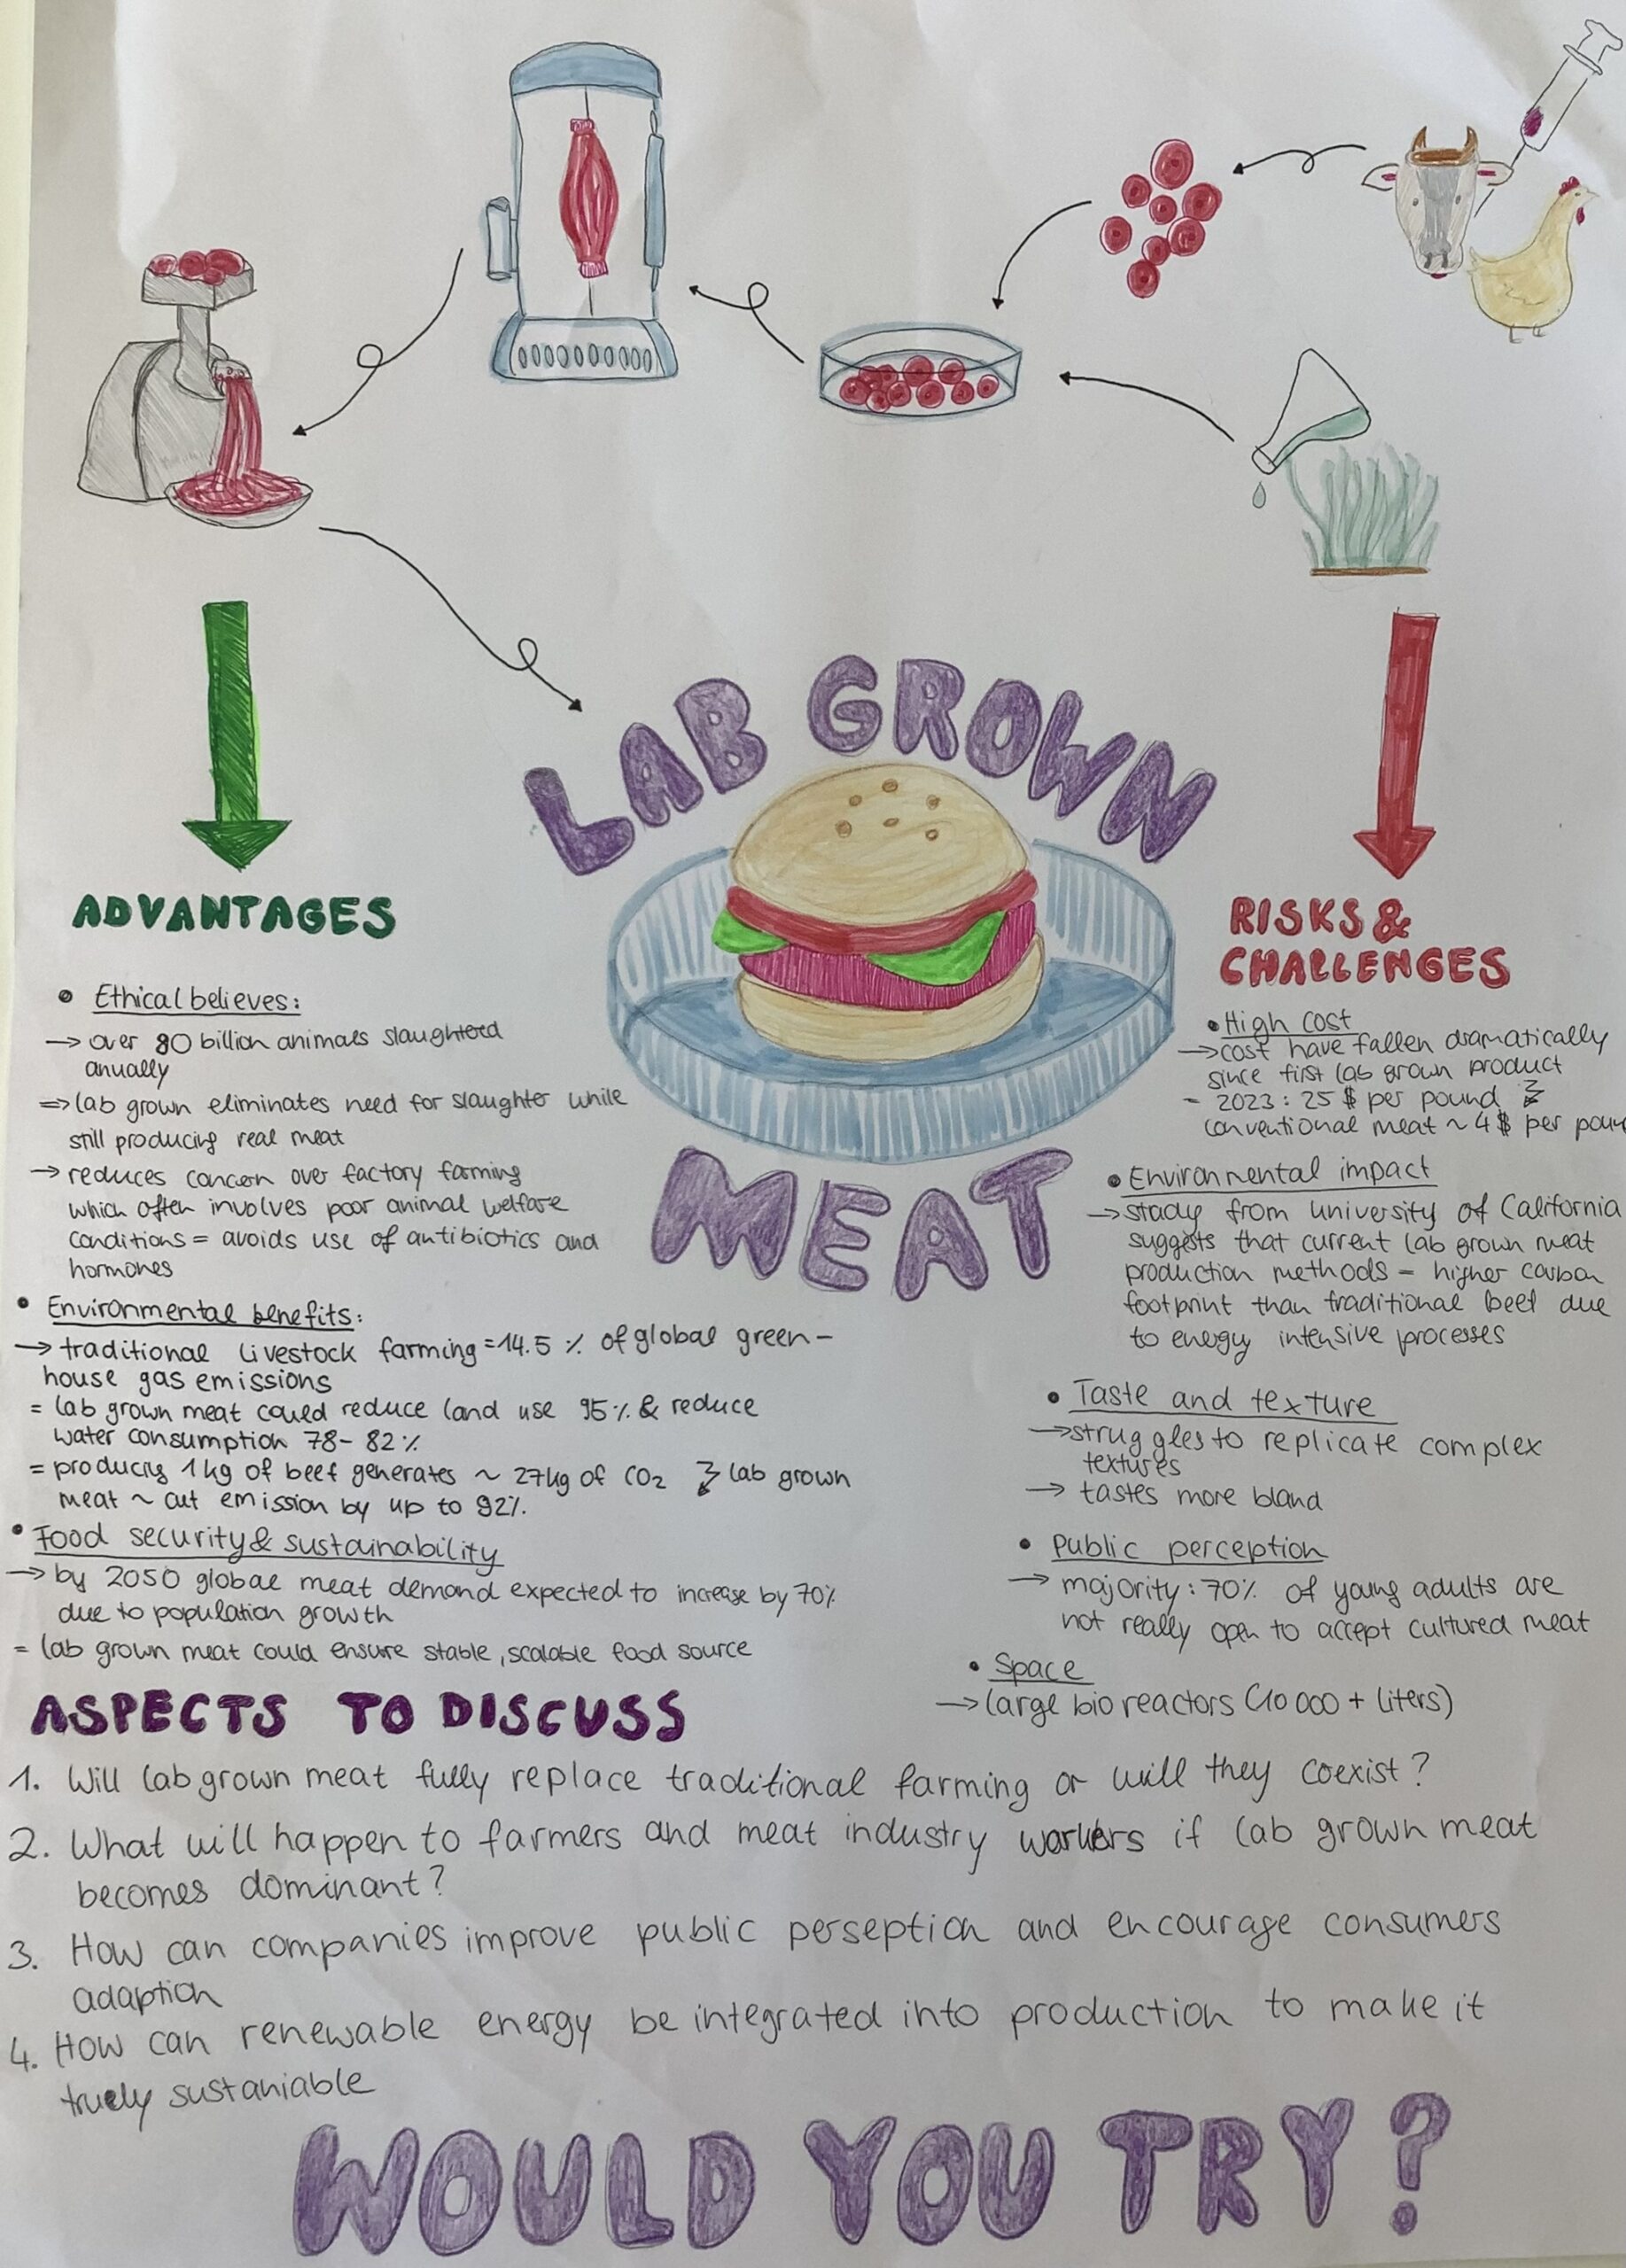 LAB GROWN
MEAT
ADVANTAGES
• Ethical believes:
→ over 80 billion animals slaughtered
anually
=> lab grown eliminates need for slaughter while
still producing real meat
→ reduces concern over factory farming
which often involves poor animal welfare
conditions = avoids use of antibiotics and
hormones
• Environmental benefits:
→ traditional livestock farming = 14.5 % of global green-
house gas emissions
= lab grown meat could reduce land use 95% & reduce
water consumption 78-82%
= producing 1kg of beef generates ~ 27kg of CO2 lab grown
meat ~ cut emission by up to 92%.
• Food security & sustainability
→ by 2050 global meat demand expected to increase by 70%
due to population growth
= lab grown meat could ensure stable, scalable food source
RISKS &
CHALLENGES
• High cost
→ cost have fallen dramatically
since first lab grown product
- 2023: 25 $ per pound
conventional meat ~ 4$ per poun
• Environmental impact
→ study from university of California
suggests that current lab grown meat
production methods - higher carbon
footprint than traditional beef due
to energy intensive processes
• Taste and texture
→ struggles to replicate complex
textures
→ tastes more bland
• Public perception
→ majority: 70% of young adults are
not really open to accept cultured meat
• Space
→ large bio reactors (10 000 + liters)
ASPECTS TO DISCUSS
1. Will lab grown meat fully replace traditional farming or will they coexist?
2. What will happen to farmers and meat industry workers if lab grown meat
becomes dominant?
3. How can companies improve public perseption and encourage consumers
adaption
4. How can renewable energy be integrated into production to make it
truely sustaniable
WOULD YOU TRY?